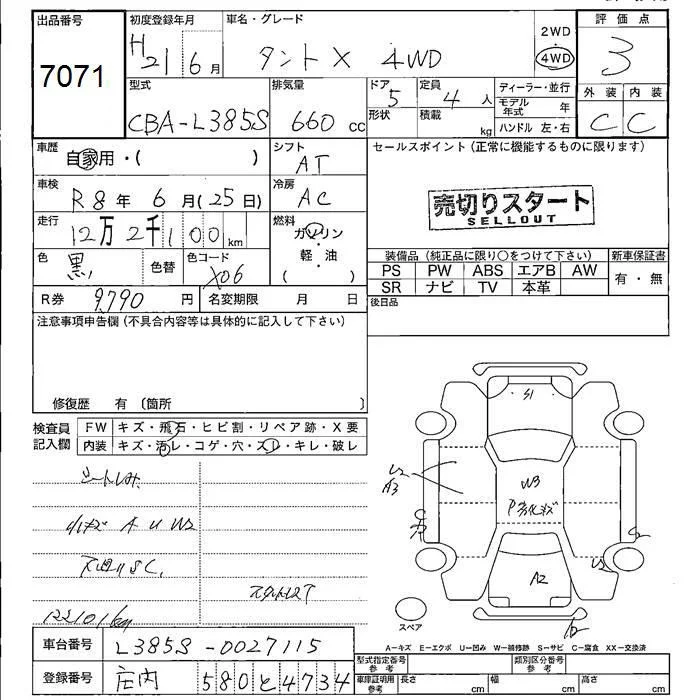 出品番号
7071
初度登録年月
H 21 6月
車名・グレード
タント X 4WD
2WD
4WD
評価点
3
外装 内装
C C
型式
CBA-L385S
排気量
660 cc
ドア
5
形状
定員
4 人
積載
kg
ディーラー・並行
モデル年式 年
ハンドル 左・右
車歴
自家用・( )
シフト
AT
セールスポイント(正常に機能するものに限ります)
売切りスタート
SELLOUT
車検
R8年 6月(25日)
冷房
AC
走行
12万2千100km
燃料
ガソリン
軽・油
( ・ )
色
黒
色替
色コード
X06
装備品(純正品に限り○をつけて下さい)
新車保証書
PS PW ABS エアB AW
SR ナビ TV 本革
有・無
R券
9,790円
名変期限 月 日
後日品
注意事項申告欄(不具合内容等は具体的に記入して下さい)
修復歴 有(箇所 )
検査員記入欄
FW キズ・飛石・ヒビ割・リペア跡・X要
内装 キズ・汚レ・コゲ・穴・スレ・キレ・破レ
小キズ A U W2
122101km
S1
U2
A3
W3
A2
スペア
A-キズ E-エクボ U-凹み W-補修跡 S-サビ C-腐食 XX-交換済
車台番号
L385S-0027115
登録番号
庄内 580 と 4734
型式指定番号 参考
類別区分番号 参考
車庫証明用 参考
長さ cm
幅 cm
高さ cm